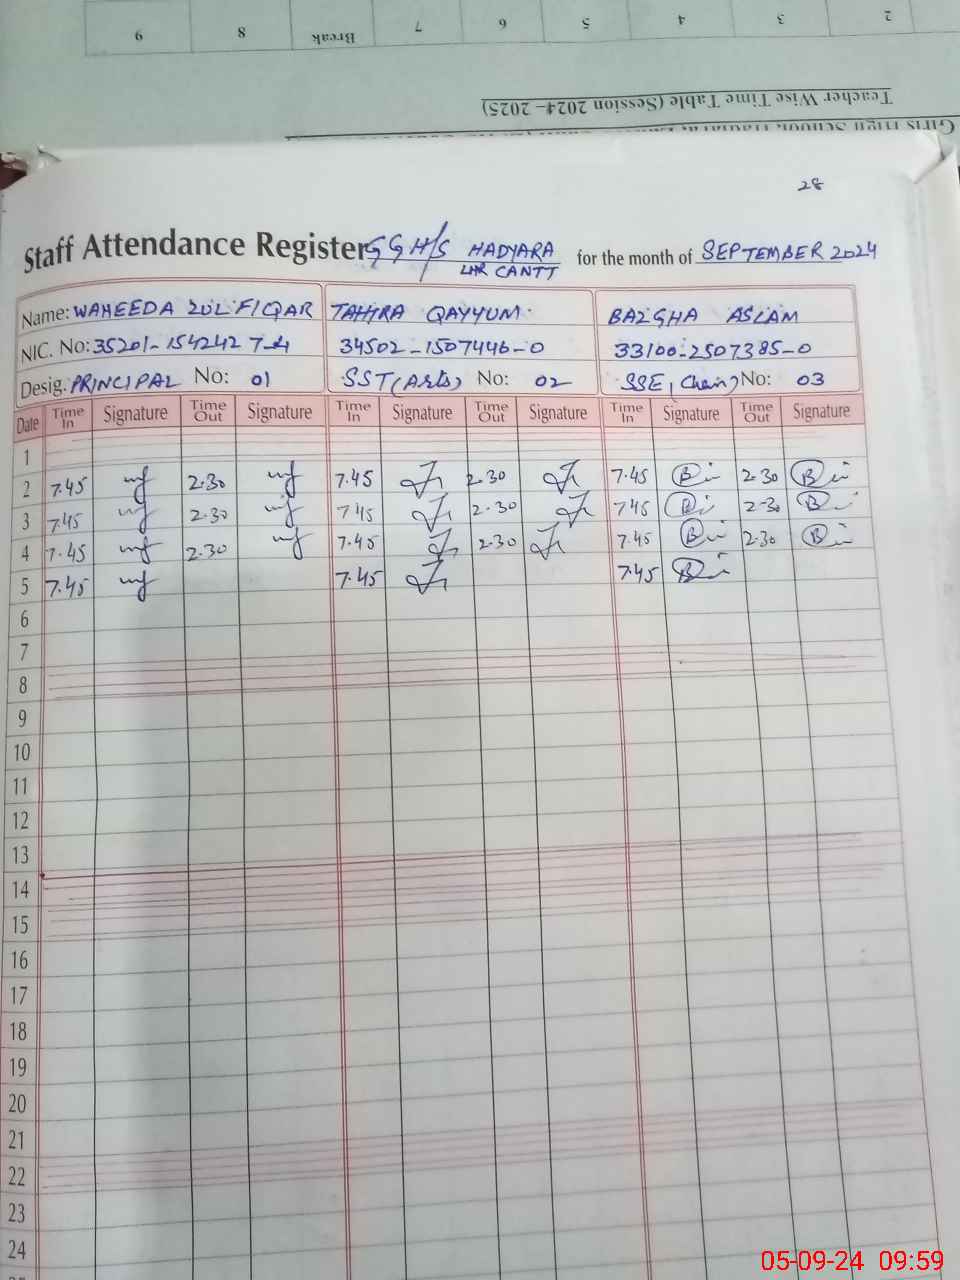 9 8 Break 7 6 5 4 3 2
Teacher Wise Time Table (Session 2024-2025)
28
Staff Attendance Register GGH/S HADYARA LHR CANTT for the month of SEPTEMBER 2024
Name: WAHEEDA ZULFIQAR TAHIRA QAYYUM BAZGHA ASLAM
NIC. No: 35201-1542427-4 34502-1507446-0 33100-2507385-0
Desig. PRINCIPAL No: 01 SST (Arts) No: 02 SSE, (Chem) No: 03
Date Time In Signature Time Out Signature Time In Signature Time Out Signature Time In Signature Time Out Signature
1
2 7.45 2.30 7.45 2.30 7.45 2.30
3 7.45 2.30 7.45 2.30 7.45 2.30
4 7.45 2.30 7.45 2.30 7.45 2.30
5 7.45 7.45 7.45
6
7
8
9
10
11
12
13
14
15
16
17
18
19
20
21
22
23
24
05-09-24 09:59